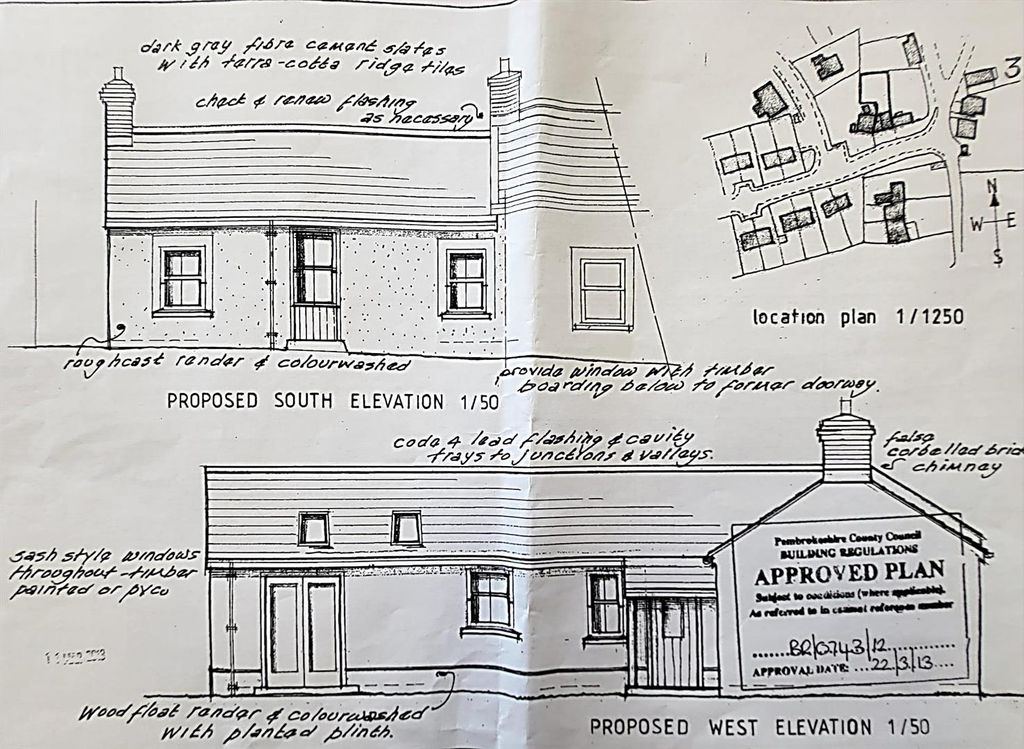 dark gray fibre cement slates
with terra-cotta ridge tiles
check & renew flashing
as necessary
roughcast render & colourwashed
PROPOSED SOUTH ELEVATION 1/50
3
N
W E
S
location plan 1/1250
provide window with timber
boarding below to former doorway.
code 4 lead flashing & cavity
trays to junctions & valleys.
false
corbelled bric
chimney
sash style windows
throughout - timber
painted or pvcu
Pembrokeshire County Council
BUILDING REGULATIONS
APPROVED PLAN
Subject to conditions (where applicable).
As referred to in consent reference number
BR/0743/12
APPROVAL DATE: 22/3/13
Wood float render & colourwashed
with planted plinth.
PROPOSED WEST ELEVATION 1/50